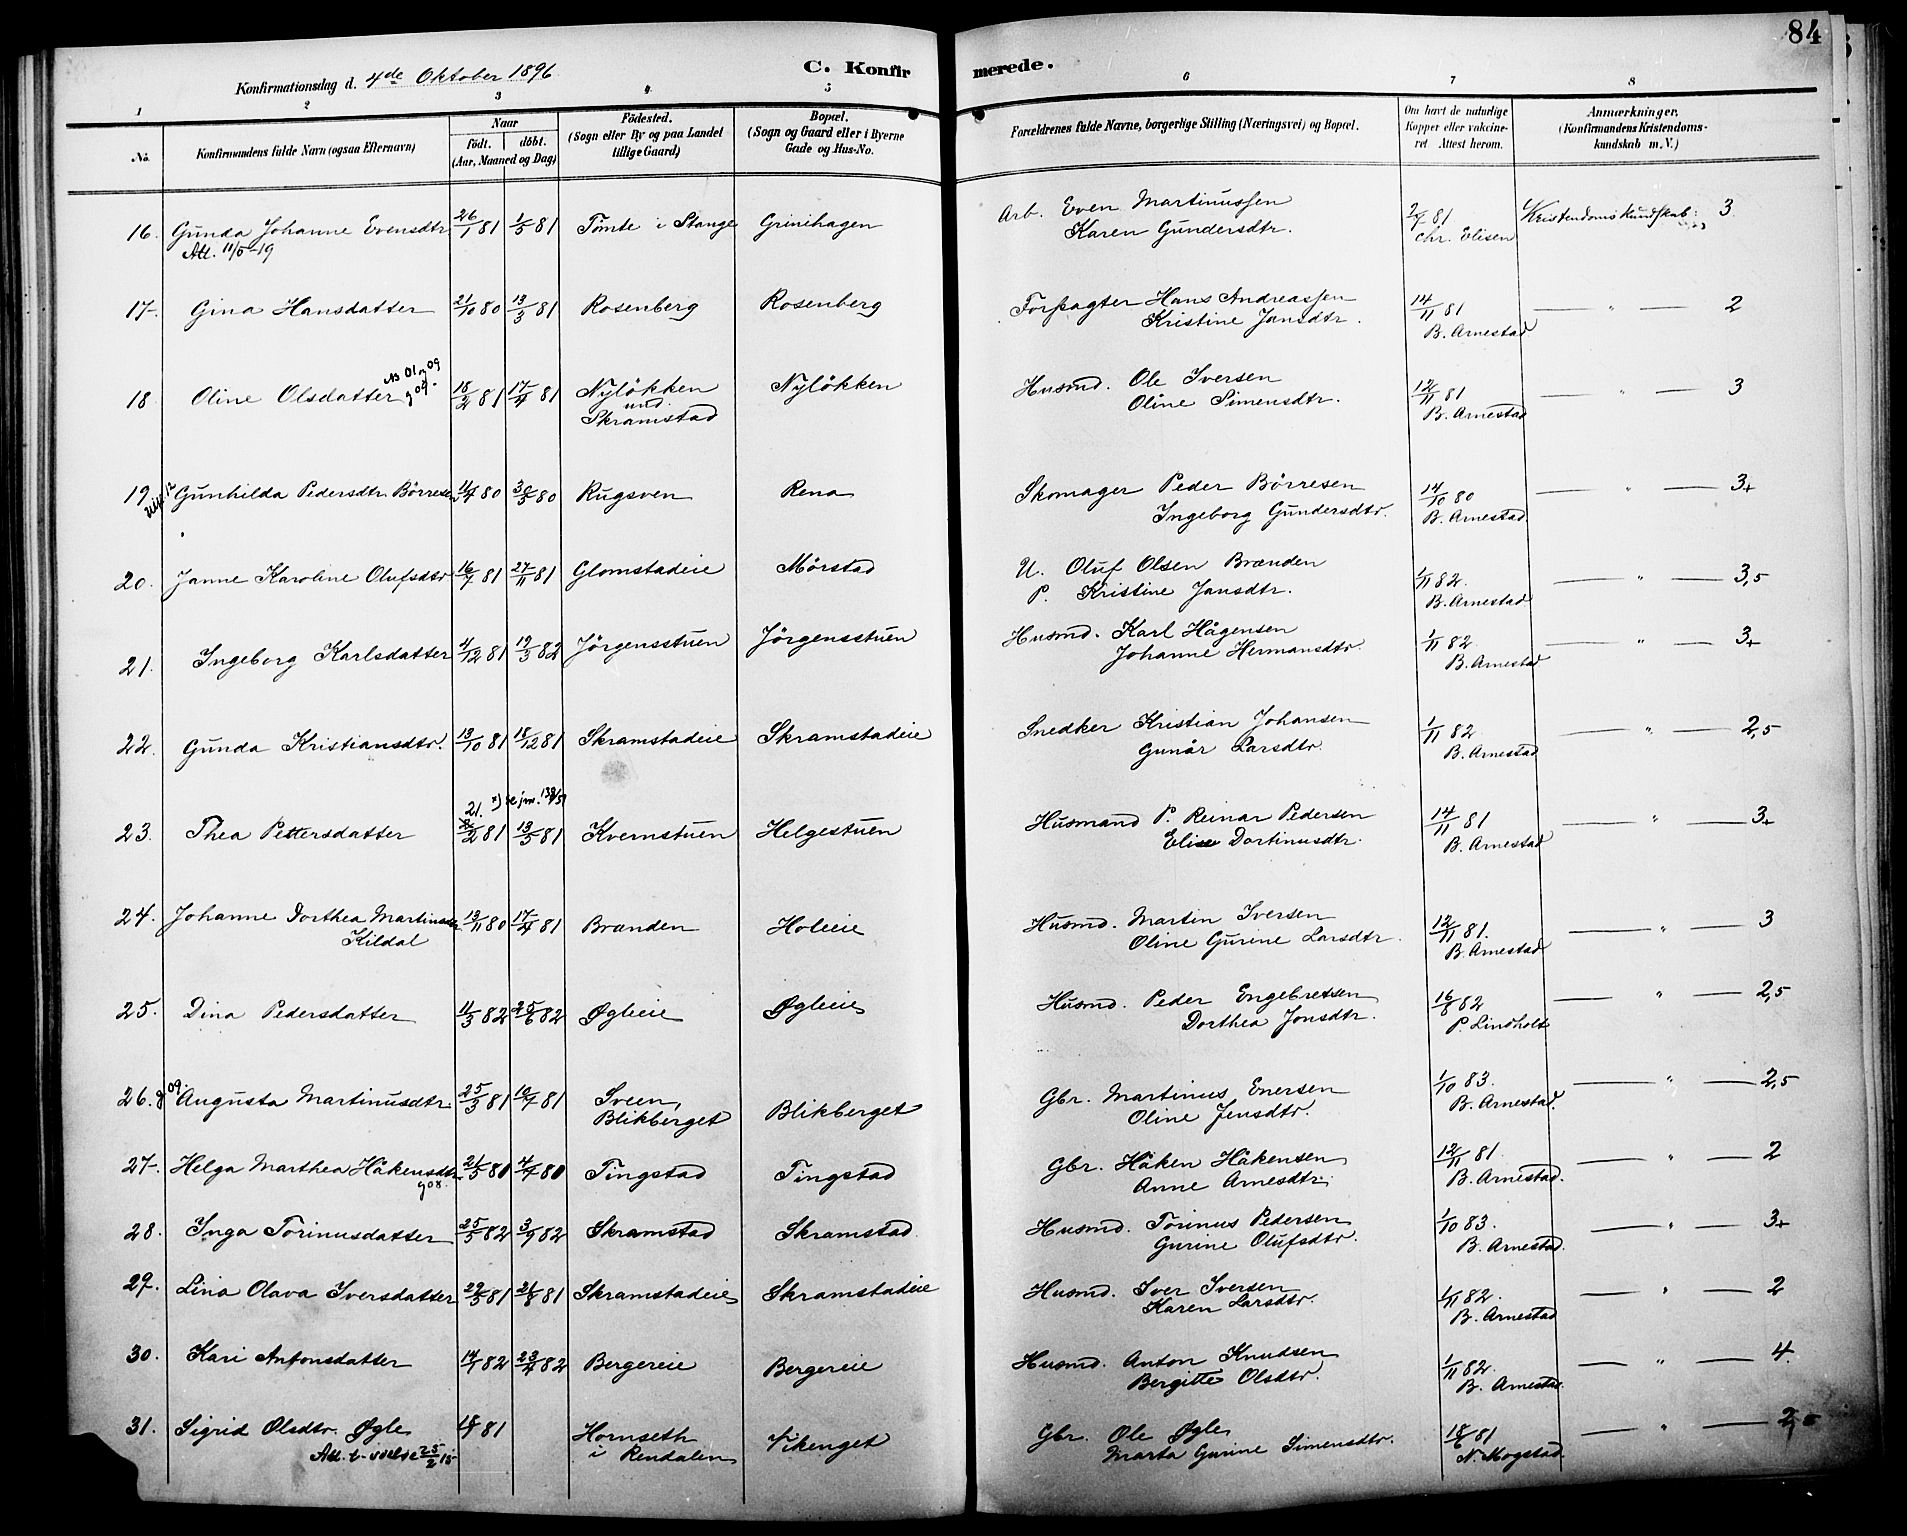 84
Konfirmationsdag d. 4de Oktober 1896
C. Konfirmerede.
1 2 3 4 5 6 7 8
No.
Konfirmandens fulde Navn (ogsaa Efternavn)
Naar
födt. döbt.
(Aar, Maaned og Dag)
Födested.
(Sogn eller By og paa Landet
tillige Gaard)
Bopæl.
(Sogn og Gaard eller i Byerne
Gade og Hus-No.
Forældrenes fulde Navne, borgerlige Stilling (Næringsvei) og Bopæl.
Om havt de naturlige
Kopper eller vakcine-
ret Attest herom.
Anmærkninger.
(Konfirmandens Kristendoms-
kundskab m.V.)
16. Gunda Johanne Evensdtr. 26/1 81 1/5 81 Tömte i Stange Grinihagen Arb. Even Martinussen 81 Kristendomskundskab: 3
Att. 11/5-19 Karen Gundersdtr. Chr. Elisen
17. Gina Hansdatter 21/10 80 13/3 81 Rosenberg Rosenberg Forpagter Hans Andreassen 14/11 81 — " — 2
Kristine Jansdtr. B. Arnestad
18. Oline Olsdatter 18/2 81 17/4 81 Nylökken Nylökken Husmd. Ole Iversen 12/11 81 — " — 3
und. Oline Simensdtr. B. Arnestad
Skramstad
19. Gunhilda Pedersdtr. Börresen 11/4 80 30/5 80 Rugsven Rena Skomager Peder Börresen 14/10 80 — " — 3+
Ingeborg Gundersdtr. B. Arnestad
20. Janne Karoline Olufsdtr 16/7 81 27/11 81 Glomstadeie Mörstad U. Oluf Olsen Brænden 1/11 82. — " — 3,5
P. Kristine Jansdtr. B. Arnestad
21. Ingeborg Karlsdatter 4/12 81 19/3 82 Jörgensstuen Jörgensstuen Husmd. Karl Hågensen 1/11 82. — " — 3+
Johanne Hermansdtr. B. Arnestad
22. Gunda Kristiansdtr. 13/10 81 18/12 81 Skramstadeie Skramstadeie Snedker Kristian Johansen 1/11 82 — " — 2,5
Gunår Larsdtr. B. Arnestad
21. x) se jnr. 139/51
23. Thea Pettersdatter /2 81 13/5 81 Kvernstuen Helgestuen Husmand P. Reinar Pedersen 14/11 81 — " — 3+
Elise Dortinusdtr. B. Arnestad
24. Johanne Dorthea Martinsdtr. 13/11 80 17/4 81 Brænden Holeie Husmd. Martin Iversen 12/11 81. — " — 3
Kildal Oline Gurine Larsdtr. B. Arnestad
25. Dina Pedersdatter 11/3 82 25/6 82 Øgleie Øgleie Husmd. Peder Engebretsen 16/8 82 — " — 2,5
Dorthea Jonsdtr. P. Lindholt
26. Augusta Martinusdtr. 25/3 81 10/7 81 Sveen, Blikberget Gbr. Martinus Enersen 1/10 83. — " — 2,5
Blikberget Oline Jensdtr. B. Arnestad.
27. Helga Marthea Håkensdtr. 21/5 80 4/7 80 Tingstad Tingstad Gbr. Håken Håkensen 12/11 81. — " — 2
Anne Arnesdtr. B. Arnestad.
28. Inga Torinusdatter 25/5 82 3/9 82 Skramstad Skramstad. Husmd. Torinus Pedersen 1/10 83. — " — 3+
Gurine Olufsdtr. B. Arnestad.
29. Lina Olava Iversdatter 22/5 81 21/8 81 Skramstadeie Skramstadeie Husmd. Iver Iversen 1/11 82. — " — 2
Karen Larsdtr. B. Arnestad
30. Kari Antonsdatter 14/1 82 23/4 82 Bergereie Bergereie Husmd. Anton Knudsen 1/11 82. — " — 4.
Bergitte Olsdtr. B. Arnestad
31. Sigrid Olsdtr. Øgle 81 Hornseth Vikenget Gbr. Ole Øgle 18/6 81 — " —
Att. 25/2 15 i Rendalen Marta Gurine Simensdtr. N. Mogstad.